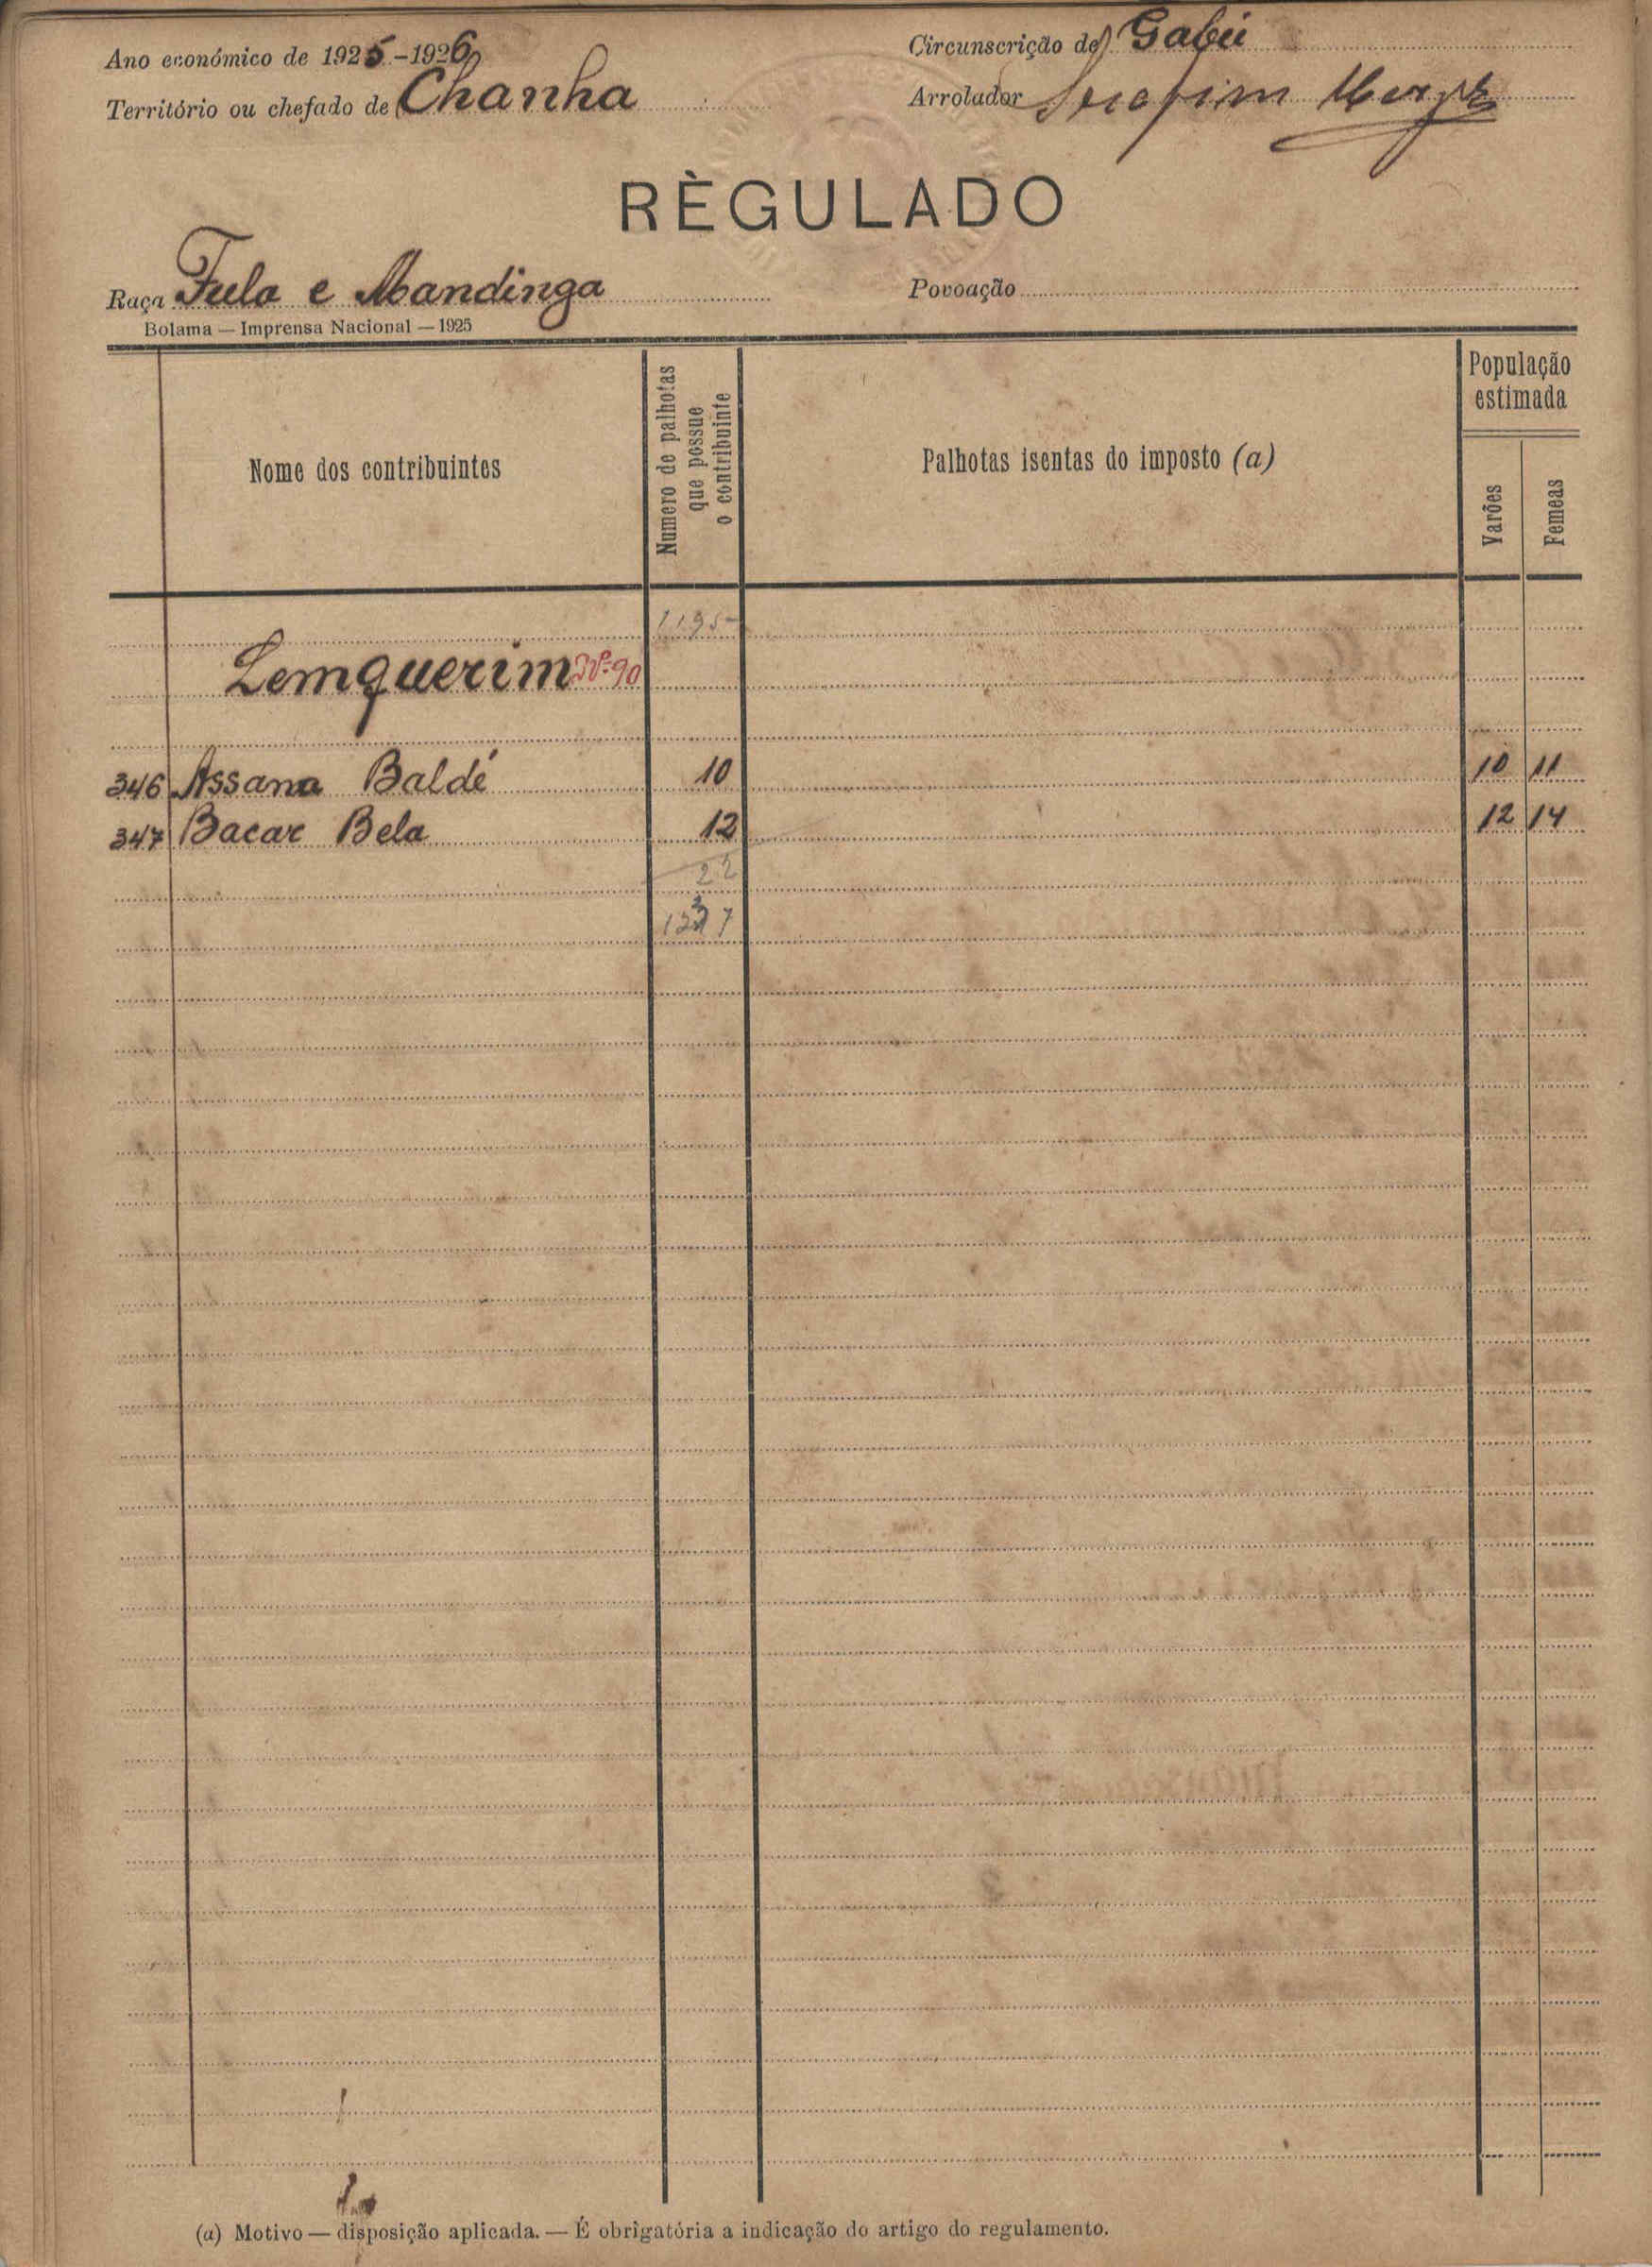 Ano económico de 1925-1926
Circunscrição de Gabú
Território ou chefado de Chanha
Arrolador Serafim
RÈGULADO
Raça Fula e Mandinga
Povoação
Bolama — Imprensa Nacional — 1925
Nome dos contribuintes
Numero de palhotas
que possue
o contribuinte
Palhotas isentas do imposto (a)
População
estimada
Varões
Femeas
1195
Lemquerim Nº 90
346 Assana Baldé 10 10 11
347 Bacar Bela 12 12 14
22
(a) Motivo — disposição aplicada. — É obrigatória a indicação do artigo do regulamento.